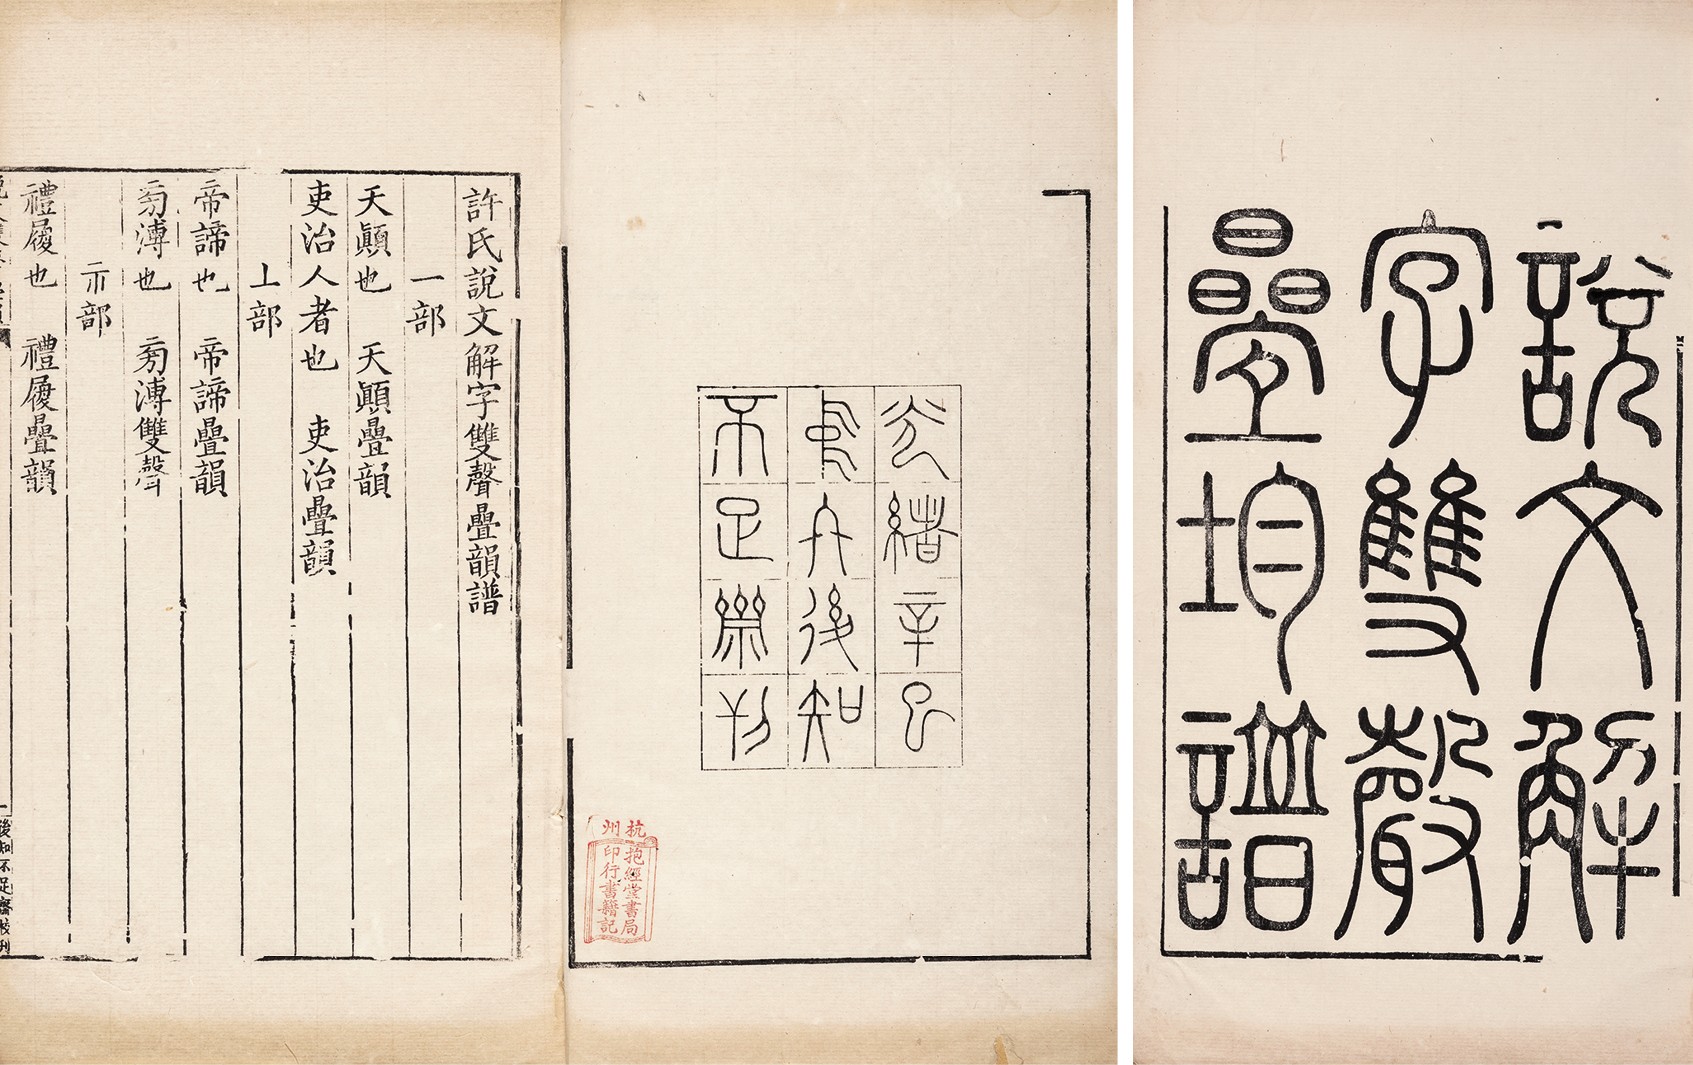 說文解
字雙聲
疊均譜
光緒辛巳
後知
不足齋刊
杭州
抱經堂書局
印行書籍記
許氏說文解字雙聲疊韻譜
一部
天顚也 天顚疊韻
吏治人者也 吏治疊韻
丄部
帝諦也 帝諦疊韻
㫄溥也 㫄溥雙聲
示部
禮履也 禮履疊韻
一
後知不足齋校刊